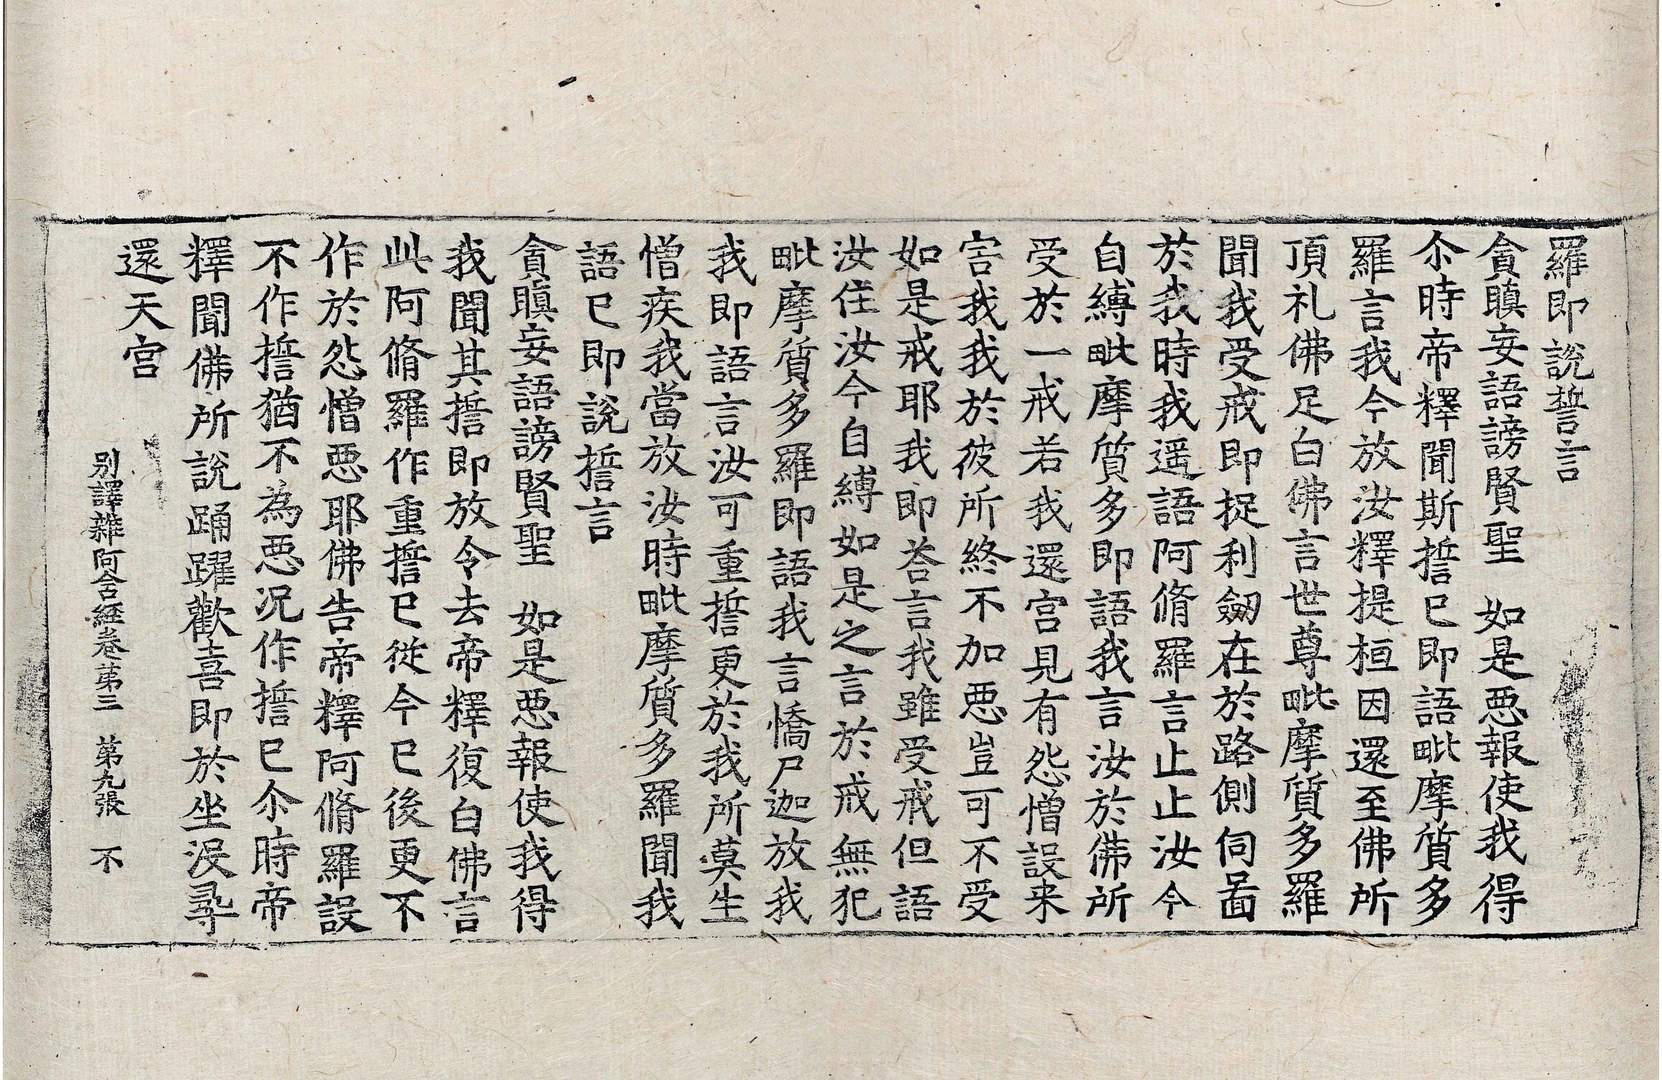 羅即說誓言
貪瞋妄語謗賢聖　如是惡報使我得
尒時帝釋聞斯誓已即語毗摩質多
羅言我今放汝釋提桓因還至佛所
頂礼佛足白佛言世尊毗摩質多羅
聞我受戒即捉利劔在於路側伺啚
於我時我遥語阿脩羅言止止汝今
自縛毗摩質多即語我言汝於佛所
受於一戒若我還宮見有怨憎設来
害我我於彼所終不加惡豈可不受
如是戒耶我即荅言我雖受戒但語
汝住汝今自縛如是之言於戒無犯
毗摩質多羅即語我言憍尸迦放我
我即語言汝可重誓更於我所莫生
憎疾我當放汝時毗摩質多羅聞我
語已即說誓言
貪瞋妄語謗賢聖　如是惡報使我得
我聞其誓即放令去帝釋復白佛言
此阿脩羅作重誓已從今已後更不
作於怨憎惡耶佛告帝釋阿脩羅設
不作誓猶不為惡況作誓已尒時帝
釋聞佛所說踊躍歡喜即於坐沒尋
還天宮
別譯雜阿含經卷第三　第九張　不